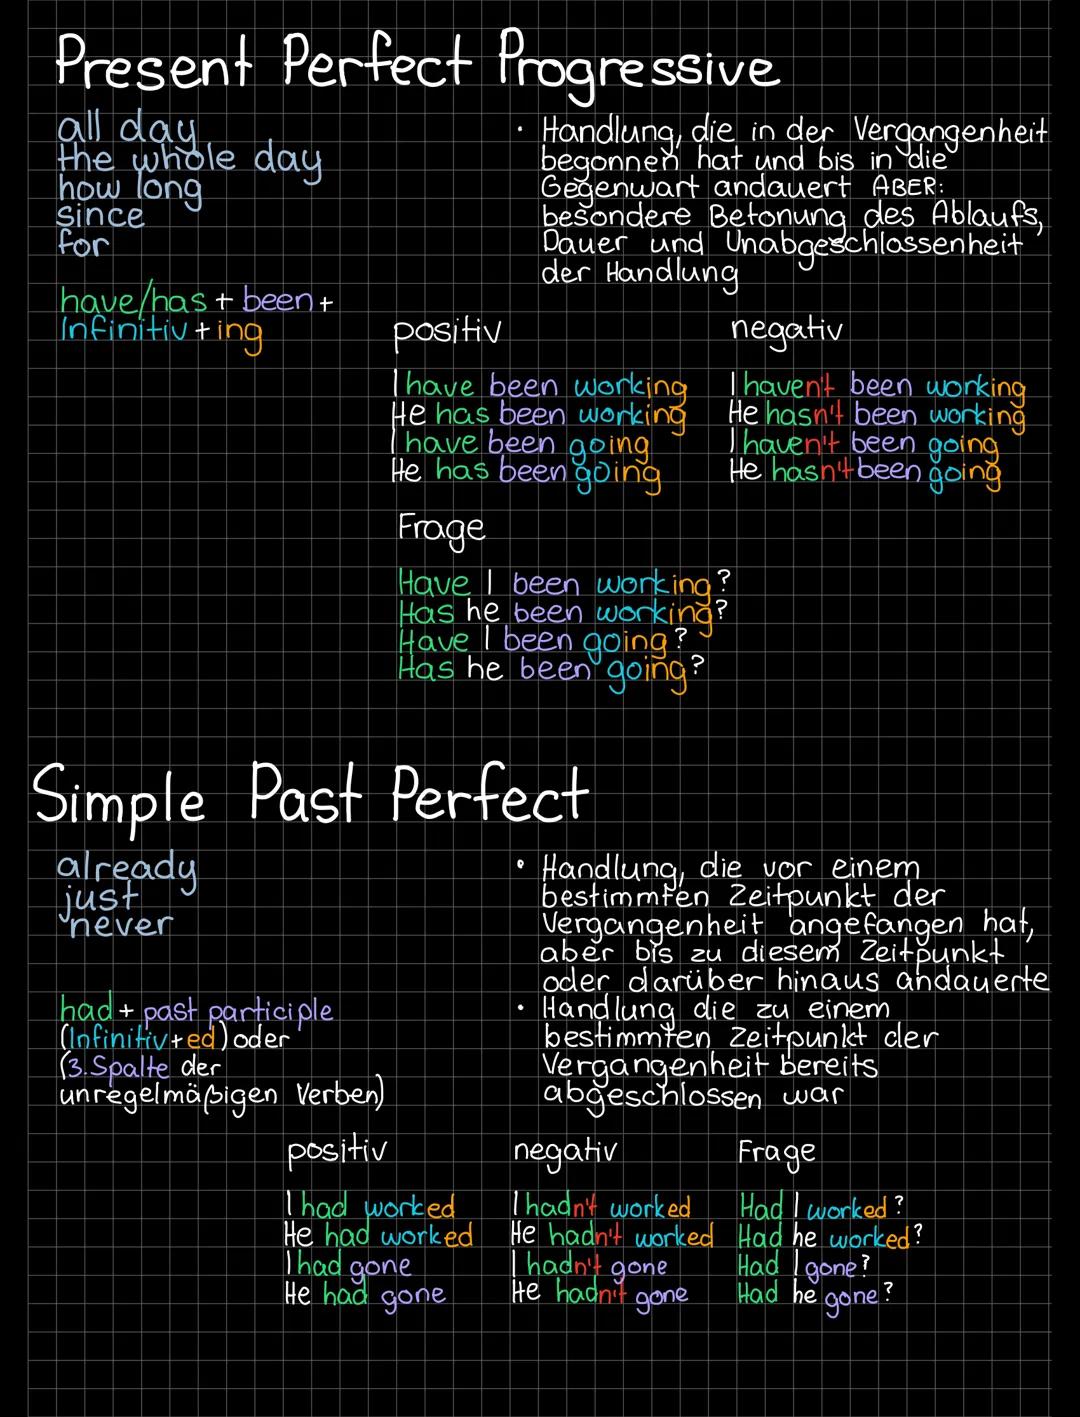 Present Perfect Progressive
all day
the whole day
how long
since
for
• Handlung, die in der Vergangenheit
begonnen hat und bis in die
Gegenwart andauert ABER:
besondere Betonung des Ablaufs,
Dauer und Unabgeschlossenheit
der Handlung
have/has + been +
Infinitiv + ing
positiv
I have been working
He has been working
I have been going
He has been going
negativ
I haven't been working
He hasn't been working
I haven't been going
He hasn't been going
Frage
Have I been working?
Has he been working?
Have I been going?
Has he been going?
Simple Past Perfect
already
just
never
• Handlung, die vor einem
bestimmten Zeitpunkt der
Vergangenheit angefangen hat,
aber bis zu diesem Zeitpunkt
oder darüber hinaus andauerte
• Handlung die zu einem
bestimmten Zeitpunkt der
Vergangenheit bereits
abgeschlossen war
had + past participle
(Infinitiv + ed) oder
(3. Spalte der
unregelmäßigen Verben)
positiv
I had worked
He had worked
I had gone
He had gone
negativ
I hadn't worked
He hadn't worked
I hadn't gone
He hadn't gone
Frage
Had I worked?
Had he worked?
Had I gone?
Had he gone?